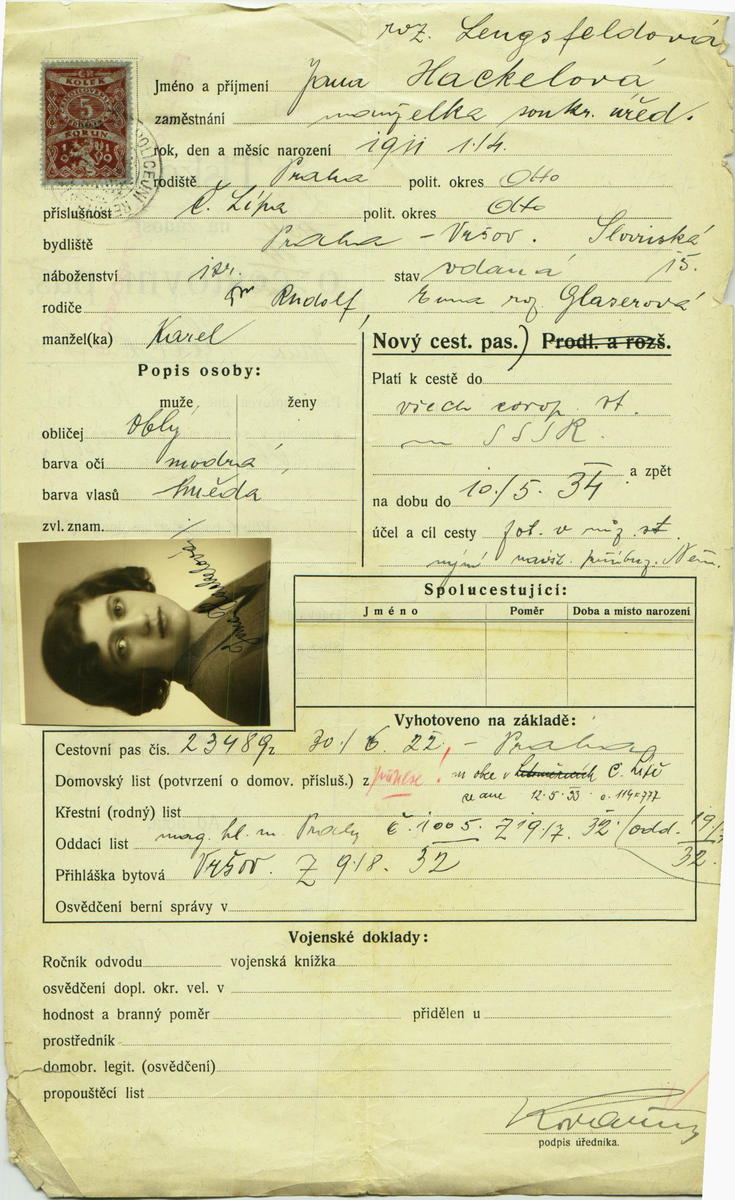 roz. Lengsfeldová
KOLEK
5
KORUN
Jméno a příjmení Jana Hackelová
zaměstnání manželka soukr. úřed.
rok, den a měsíc narození 1911 1./4.
rodiště Praha polit. okres dtto
příslušnost Č. Lípa polit. okres dtto
bydliště Praha - Vršov. Slovinská
náboženství izr. stav vdaná 15.
rodiče Rudolf, Ema roz Glaserová
manžel(ka) Karel
Nový cest. pas.) Prodl. a rozš.
Popis osoby:
muže, ženy
obličej Oblý
barva očí modrá
barva vlasů hnědá
zvl. znam. /
Platí k cestě do
všech evrop. st.
SSSR.
a zpět
na dobu do 10./5. 34
účel a cíl cesty st.
příbuz. Něm.
Jana Hackelová
Spolucestující:
Jméno Poměr Doba a místo narození
Vyhotoveno na základě:
Cestovní pas čís. 23489 30./6. 22 - Praha
Domovský list (potvrzení o domov. přísluš.) z ! v Litoměřicích Č. Lípě
ze dne 12.5.33
Křestní (rodný) list
Oddací list mag. hl. m. Prahy č. 1005. Z 19./7. 32. (odd. 19/7
32.
Přihláška bytová Vršov. Z 9./8. 32
Osvědčení berní správy v
Vojenské doklady:
Ročník odvodu vojenská knížka
osvědčení dopl. okr. vel. v
hodnost a branný poměr přidělen u
prostředník
domobr. legit. (osvědčení)
propouštěcí list
podpis úředníka.